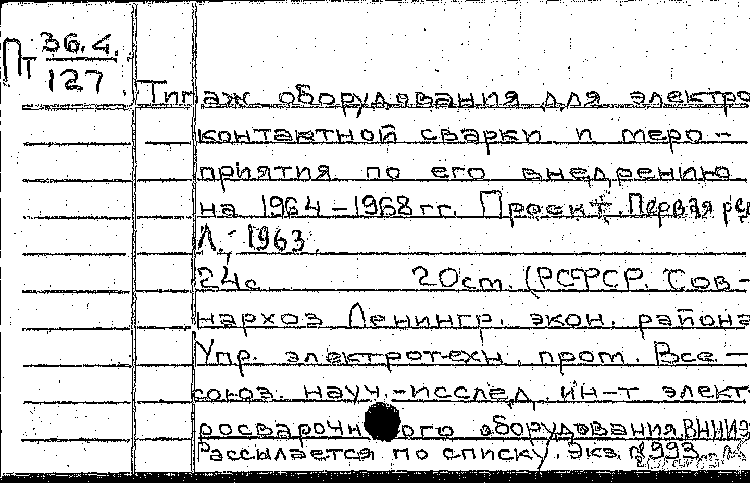 Пт 36.4.
127
Типаж оборудования для электро
контактной сварки и меро-
приятия по его внедрению
на 1964-1968 гг. Проект. Первая ред
Л., 1963.
24с 20см. (РСФСР. Сов-
нархоз Ленингр. экон. района
Упр. электротехн. пром. Все-
союз. науч.-исслед. ин-т элект
росварочного оборудования. ВНИИЭ
Рассылается по списку. Экз. №993